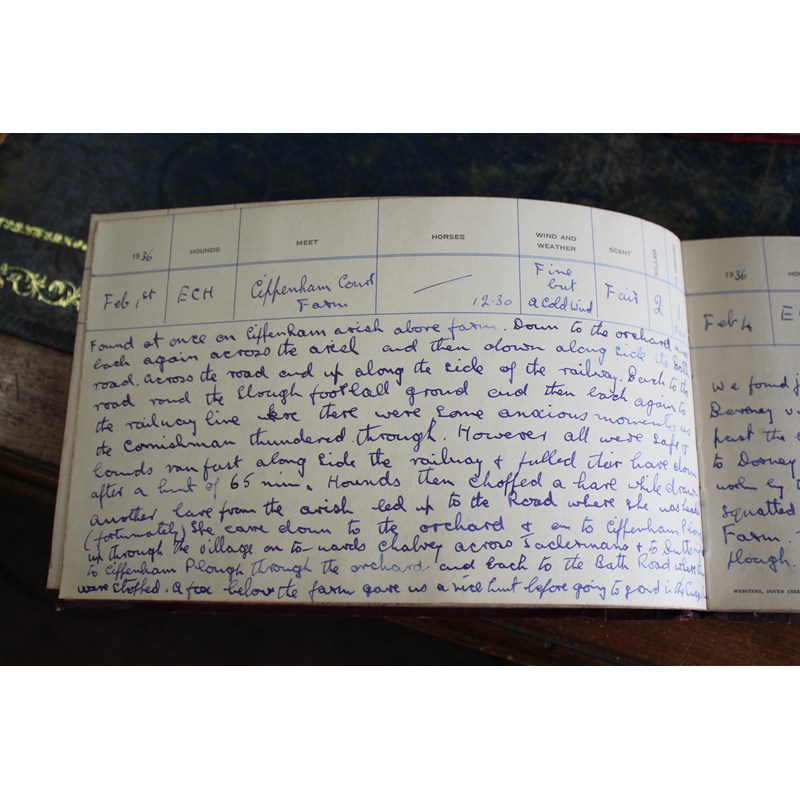 1936 HOUNDS MEET HORSES WIND AND WEATHER SCENT KILLED
Feb 1st ECH Cippenham Court Farm — 12.30 Fine but a cold wind Fair 2 1
Found at once on Cippenham arish above farm. Down to the orchard
back again across the arish and then down along side the Bath
road. Across the road and up along the side of the railway. Back to the
road round the Slough football ground and then back again to
the railway line where there were some anxious moments as
the Cornishman thundered through. However all were safe &
hounds ran fast along side the railway & pulled their hare down
after a hunt of 65 min. Hounds then chopped a hare while drawing
another hare from the arish led up to the Road where she was
(fortunately) She came down to the orchard & on to Cippenham Plough
up through the village on to-wards Chalvey across &
to Cippenham Plough through the orchard and back to the Bath Road where
were stopped. A fox below the farm gave us a nice hunt before going to ground in the
1936
Feb 4
We found
Dorney
past the
to Dorney
squatted
Farm.
plough.
WEBSTERS, DOVER